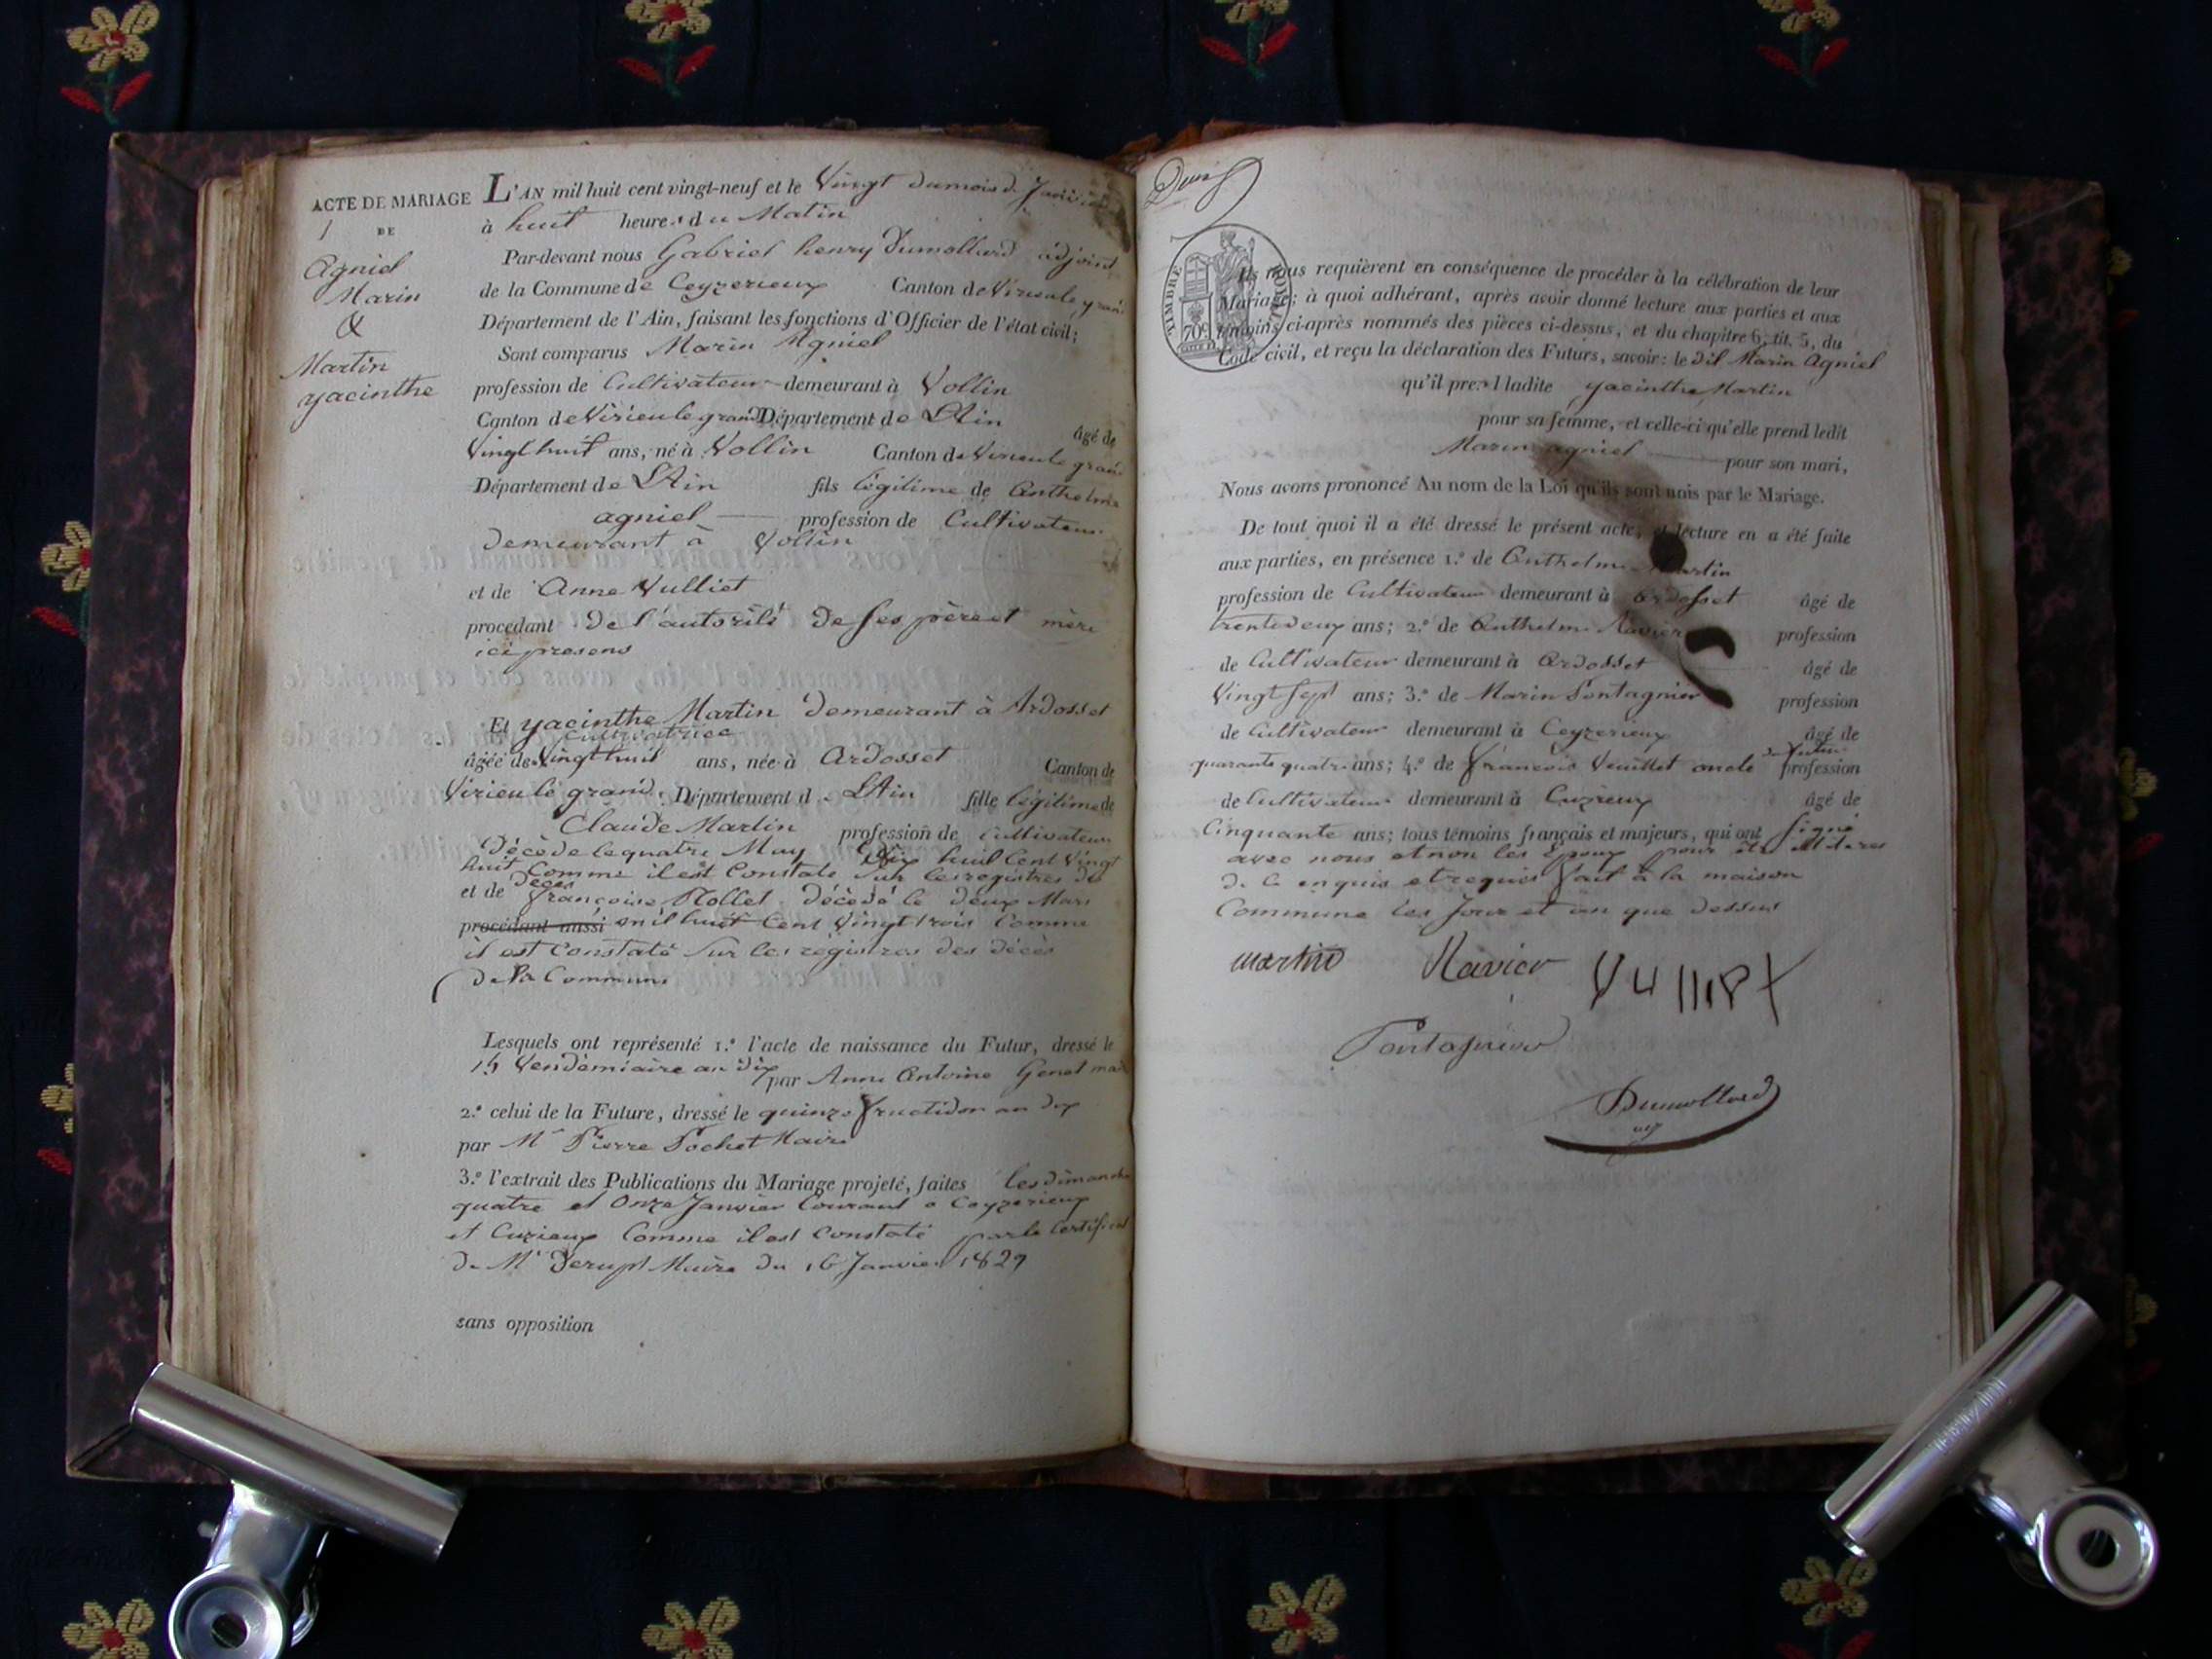 ACTE DE MARIAGE
1 DE
Agniel
Marin
&
Martin
yacinthe
L'AN mil huit cent vingt-neuf et le Vingt du mois de Janvier
à huit heures du Matin
Par-devant nous Gabriel henry Dumollard adjoint
de la Commune de Ceyzerieux Canton de Virieu le grand
Département de l'Ain, faisant les fonctions d'Officier de l'état civil;
Sont comparus Marin Agniel
profession de Cultivateur demeurant à Vollin
Canton de Virieu le grand Département de L'Ain âgé de
Vingt huit ans, né à Vollin Canton de Virieu le grand
Département de L'Ain fils légitime de Anthelme
agniel profession de Cultivateur
demeurant à Vollin
et de Anne Vulliet
procédant de l'autorité de ses père et mère
ici presens
Et yacinthe Martin demeurant à Ardosset
Cultivatrice
âgée de Vingt huit ans, née à Ardosset Canton de
Virieu le grand Département de L'Ain fille légitime de
Claude Martin profession de Cultivateur
décédé le quatre May dix huit Cent Vingt
huit Comme il est Constaté sur les registres de
décès
et de françoise Rollet décédé le deux Mars
procédant aussi mil huit Cent Vingt trois Comme
il est Constaté sur les régistres des décès
de la Commune
Lesquels ont représenté 1.º l'acte de naissance du Futur, dressé le
15 Vendémiaire an dix par Anne Antoine Genot maire
2.º celui de la Future, dressé le quinze fructidor an dix
par Mr Pierre Pochet Maire
3.º l'extrait des Publications du Mariage projeté, faites les dimanche
quatre et Onze Janvier Courant a Ceyzerieux
et Cuzieux Comme il est Constaté par le Certificat
de Mr Maire du 16 Janvier 1829
sans opposition
TIMBRE ROYAL
70c
Ils nous requièrent en conséquence de procéder à la célébration de leur
Mariage; à quoi adhérant, après avoir donné lecture aux parties et aux
témoins ci-après nommés des pièces ci-dessus, et du chapitre 6, tit. 5, du
Code civil, et reçu la déclaration des Futurs, savoir: le dit Marin Agniel
qu'il prend ladite yacinthe Martin
pour sa femme, et celle-ci qu'elle prend ledit
Marin agniel pour son mari,
Nous avons prononcé Au nom de la Loi qu'ils sont unis par le Mariage.
De tout quoi il a été dressé le présent acte, et lecture en a été faite
aux parties, en présence 1.º de Anthelme Martin
profession de Cultivateur demeurant à Ardosset âgé de
trente deux ans; 2.º de Anthelme Ravier profession
de Cultivateur demeurant à Ardosset âgé de
Vingt sept ans; 3.º de Marin Pontagnier profession
de Cultivateur demeurant à Ceyzerieux âgé de
quarante quatre ans; 4.º de françois Veuillet oncle du futur profession
de Cultivateur demeurant à Cuzieux âgé de
Cinquante ans; tous témoins français et majeurs, qui ont signé
avec nous et non les Epoux pour être illiteres
de ce enquis et requis fait à la maison
Commune les Jour et an que dessus
martin Ravier Vulliet
Pontagnier
Dumollard
adj